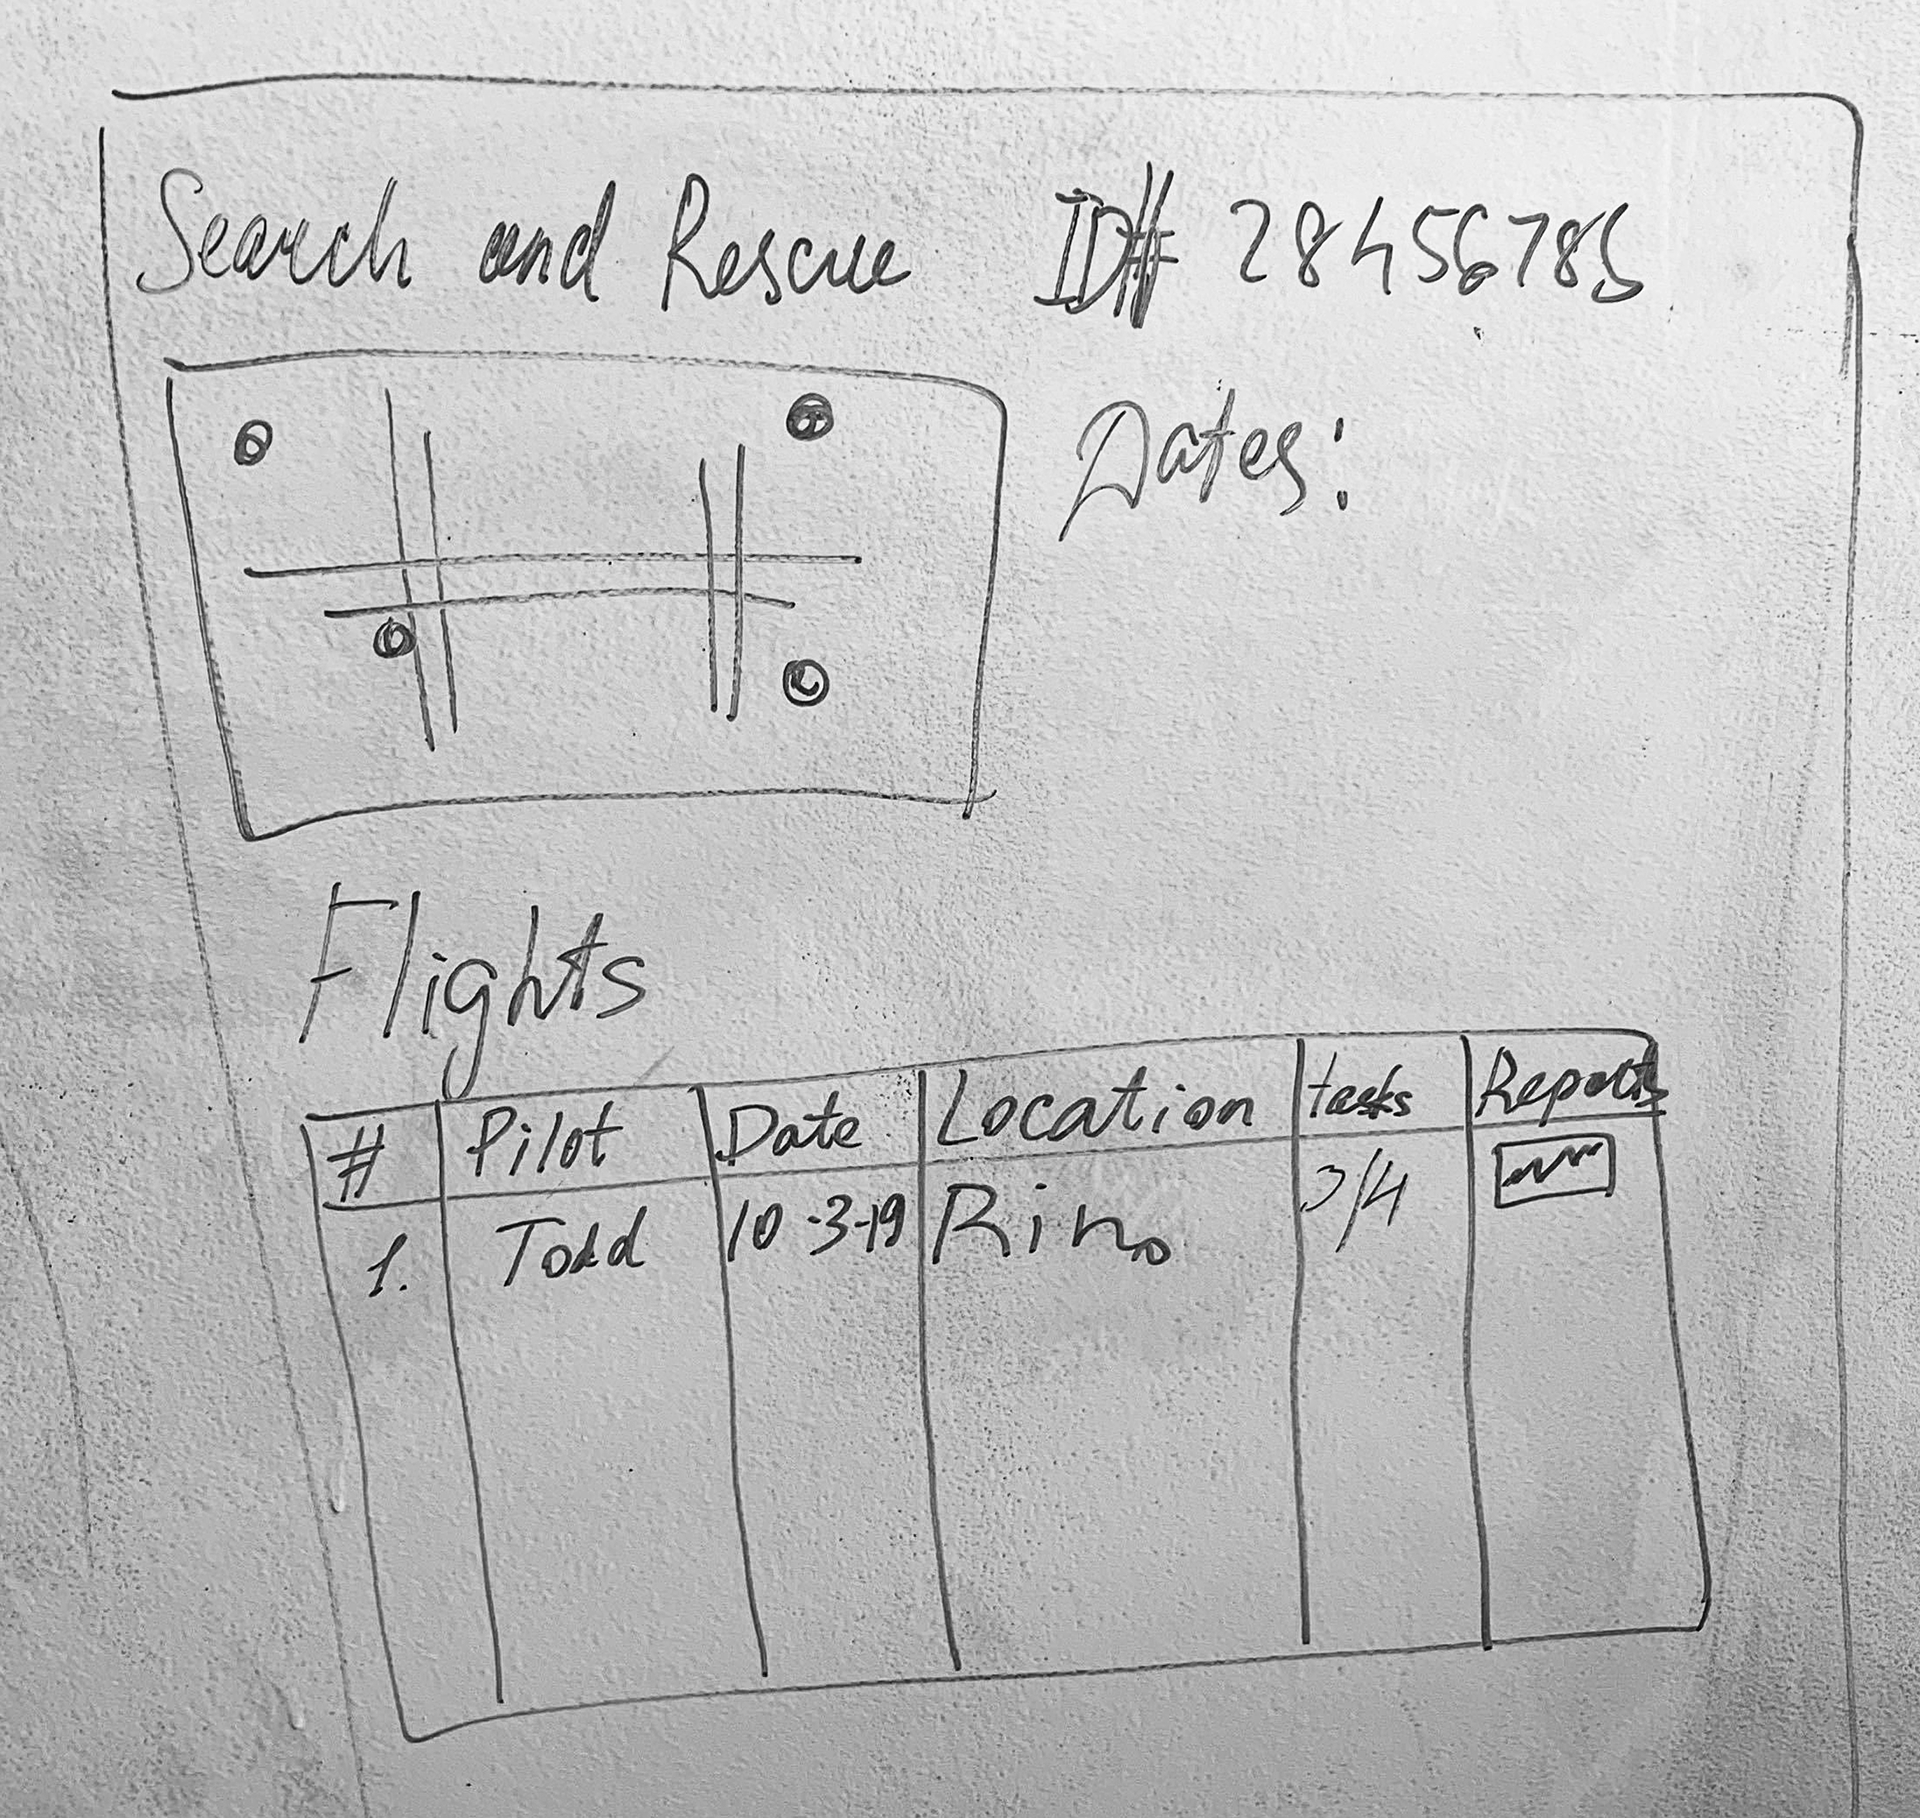 Search and Rescue ID# 28456785
Dates:
Flights
# Pilot Date Location tasks Reports
1. Todd 10-3-19 Rino 3/4